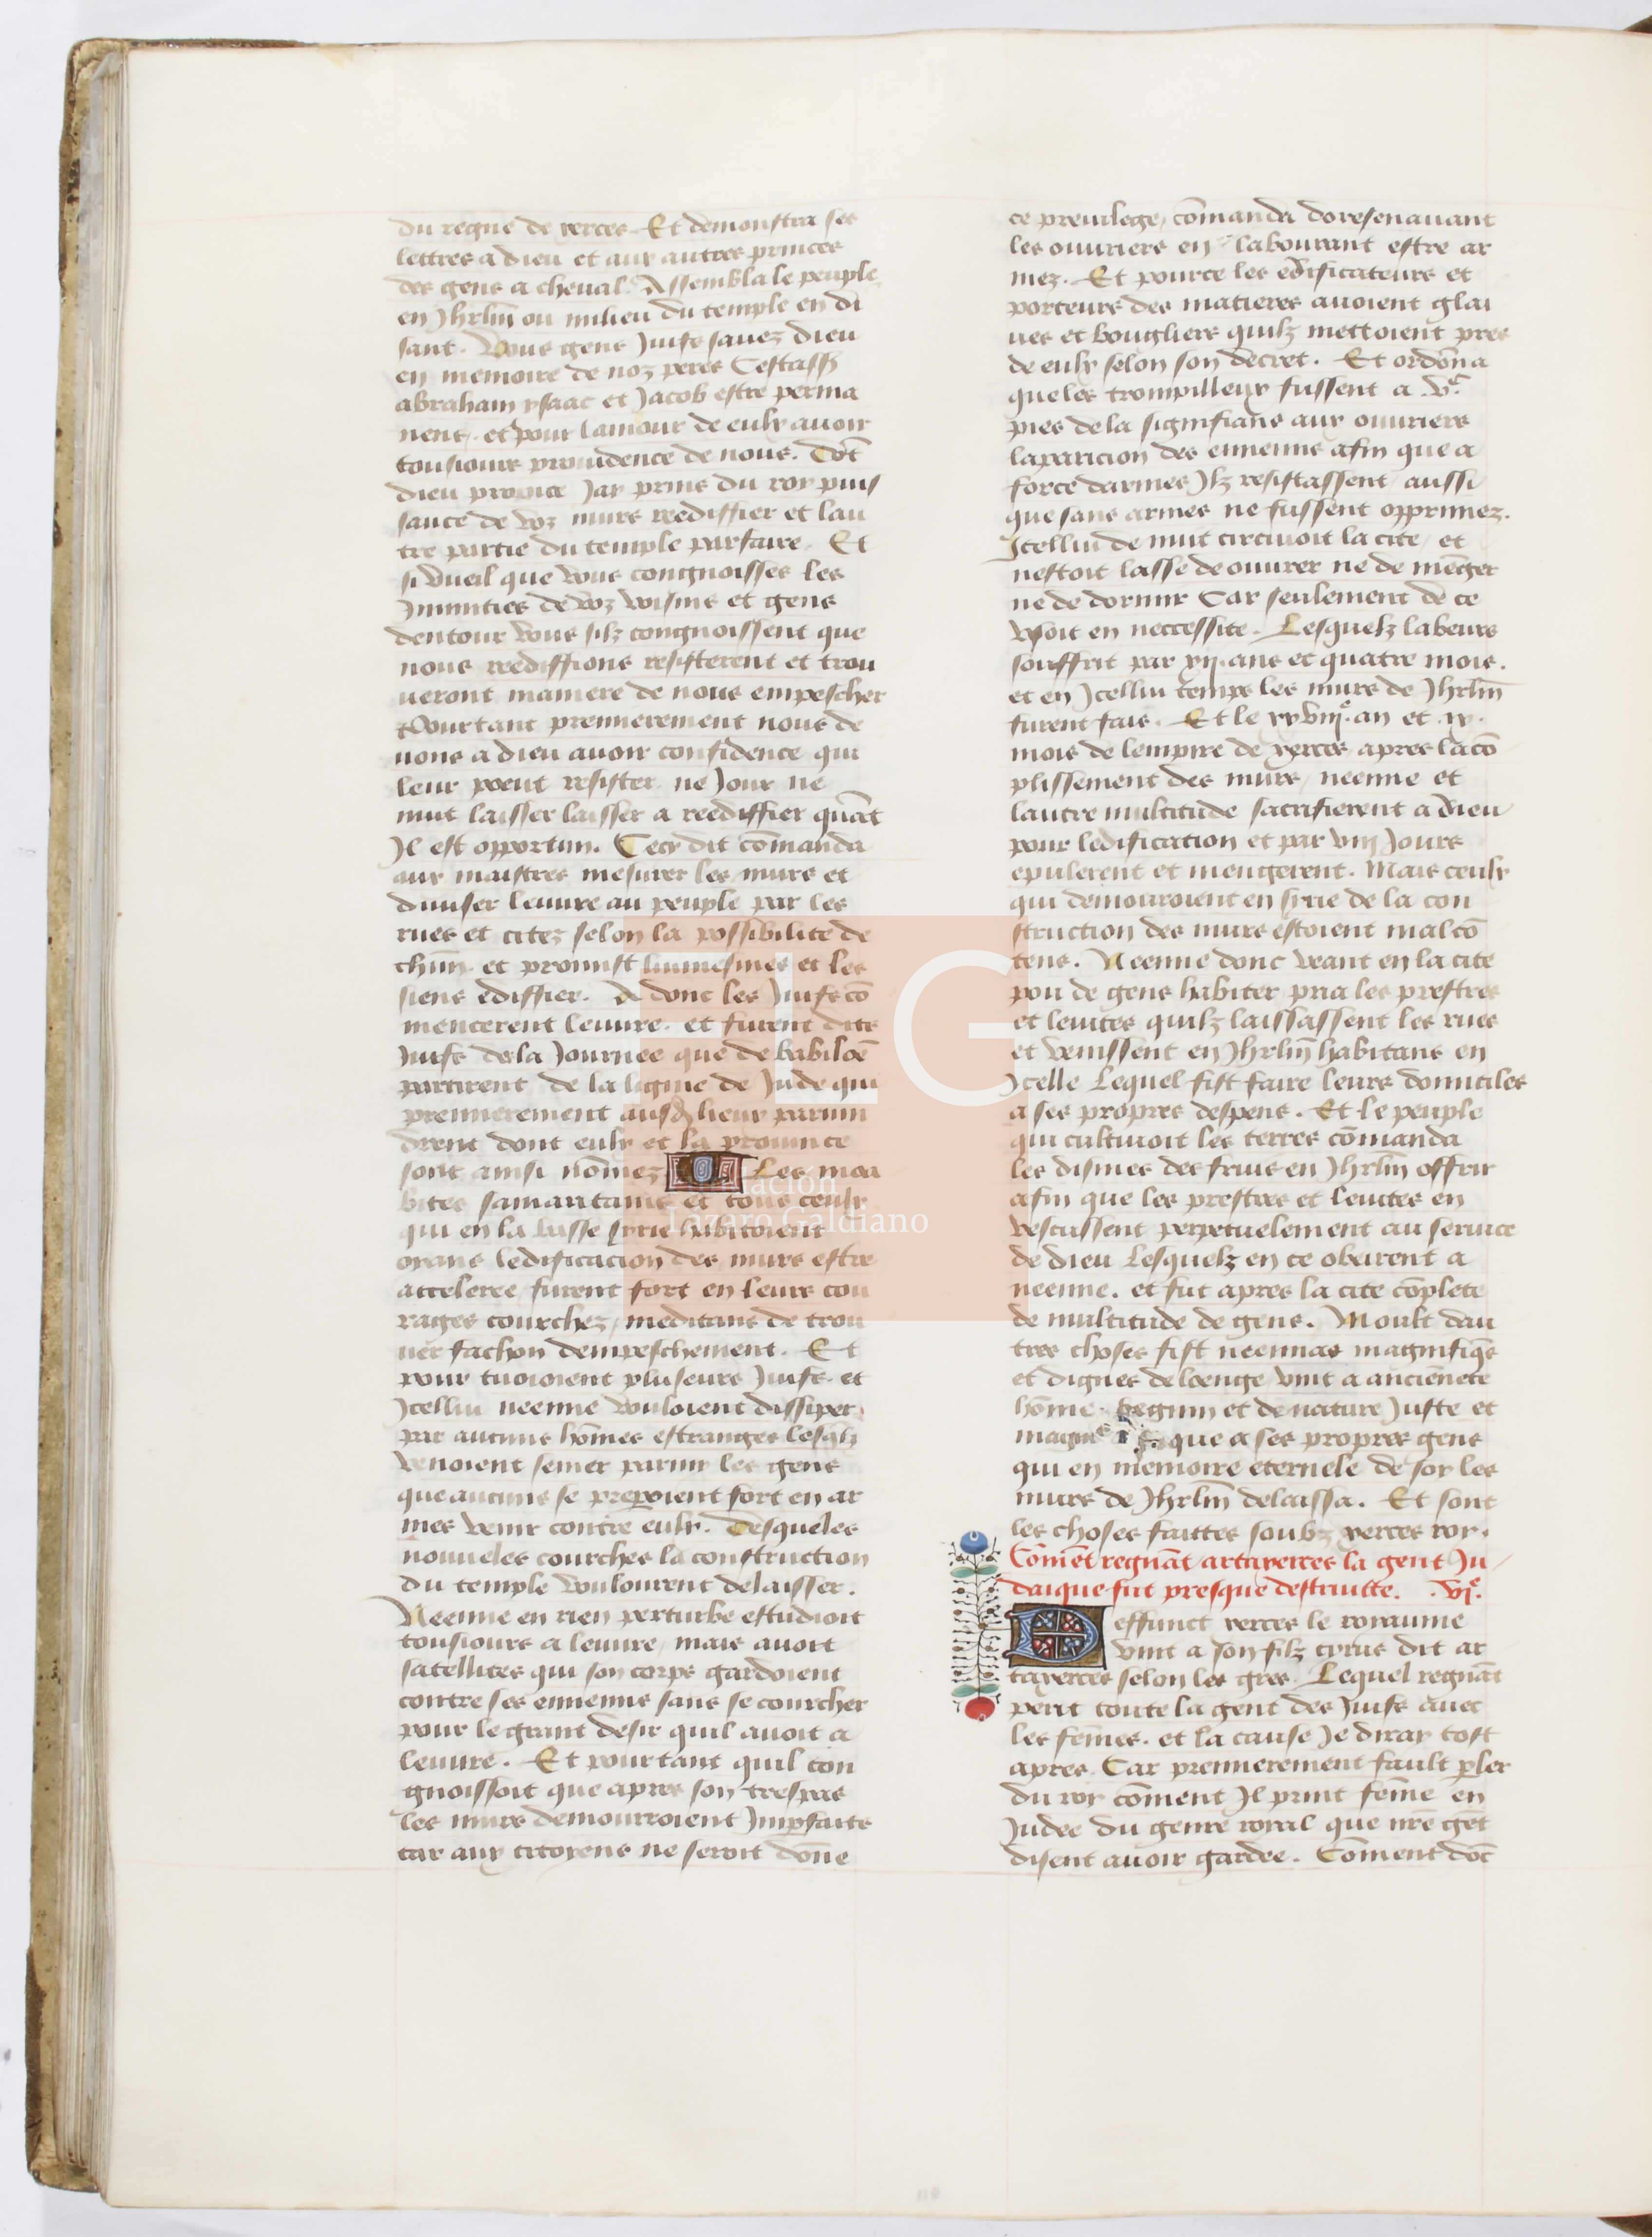 du regne de xerces. Et demonstra ses
lettres a dieu et aux autres princes
des gens a cheual. Assembla le peuple
en Jhrlm̄ ou milieu du temple en di
sant. Vous gens Juifs sauez dieu
en memoire de noz peres Cestass̄
abraham ysaac et Jacob estre perma
nent. et pour lamour de eulx auoir
tousiours prouidence de nous. Dōt
dieu propice Jay prins du roy puis
sance de voz murs reediffier et lau
tre partie du temple parfaire. Et
si vueil que vous congnoisses les
Inimities de voz voisins et gens
dentour vous silz congnoissent que
nous reediffions resisterent et trou
ueront maniere de nous empescher
Pourtant premierement nous de
uons a dieu auoir confidence qui
leur poeut resister. ne Jour ne
nuit laisser laisser a reediffier quāt
Il est opportun. Cecy dit cōmanda
aux maistres mesurer les murs et
diuiser leuure au peuple par les
rues et citez selon la possibilite de
chūn. et promist luimesmes et les
siens ediffier. A donc les Juifs cō
mencerent leuure. et furent dits
Juifs de la Journee que de babilōe
partirent de la lignie de Jude qui
premierement ausd̄ lieux paruin
drent dont eulx et la prouince
sont ainsi nōmez Les moa
bites samaritains et tous ceulx
qui en la basse syrie habitoient
oyans ledificacion des murs estre
acceleree furent fort en leurs cou
rages courchez, meditans de trou
uer fachon dempeschement. Et
pour tuoioient pluseurs Juifs. et
Icellui neemie vouloient dissiper
par aucuns hōmes estranges lesqlz
venoient semer parmy les gens
que aucuns se preparoient fort en ar
mes venir contre eulx. Desqueles
nouueles courches la construction
du temple voulourent delaisser.
Neemie en rien perturbe estudioit
tousiours a leuure, mais auoit
satellites qui son corps gardoient
contre ses ennemis sans se courcher
pour le grant desir quil auoit a
leuure. Et pourtant quil con
gnoissoit que apres son trespas
les murs demourroient Imparfaits
car aux citoyens ne seroit dōne
ce preuilege, cōmanda doresenauant
les ouuriers en labourant estre ar
mez. Et pource les edificateurs et
porteurs des matieres auoient glai
ues et bougliers quilz mettoient pres
de eulx selon son decret. Et ordōna
que les trompilleux fussent a .vͨ.
pies de la signifians aux ouuriers
laparicion des ennemis afin que a
force darmes Ilz resistassent, aussi
que sans armes ne fussent opprimez.
Icellui de nuit circuioit la cite, et
nestoit lasse de ouurer ne de mēger
ne de dormir Car seulement de ce
vsoit en neccessite. Lesquelz labeurs
souffrit par xij. ans et quatre mois.
et en Icellui temps les murs de Jhrlm̄
furent fais. Et le xxviijͤ. an et .ix.
mois de lempire de xerces apres lacō
plissement des murs, neemie et
lautre multitude sacrifierent a dieu
pour ledification et par viij Jours
epulerent et mengerent. Mais ceulx
qui demouroient en sirie de la con
struction des murs estoient mal cō
tens. Neemie donc veant en la cite
pou de gens habiter pria les prestres
et leuites quilz laissassent les rues
et venissent en Jhrlm̄ habitans en
Icelle Lequel fist faire leurs domiciles
a ses propres despens. Et le peuple
qui cultiuoit les terres cōmanda
les dismes des fruis en Jhrlm̄ offrir
afin que les prestres et leuites en
vescussent perpetuelement au seruice
de dieu Lesquelz en ce obeirent a
neemie. et fut apres la cite cōplete
de multitude de gens. Moult dau
tres choses fist neemias magnifiq̄s
et dignes de loenge, vint a anciēnete
hōme begnin et de nature Juste et
que a ses propres gens
qui en memoire eternele de soy les
murs de Jhrlm̄ delaissa. Et sont
les choses faittes soubz xerces roy.
Cōmēt regnāt artaxerces la gent Ju
daique fut presque destruitte. .vjͤ.
Deffunct xerces le royaume
vint a son filz cyrus dit ar
taxerces selon les gres. Lequel regnāt
perit toute la gent des Juifs auec
les fēmes. et la cause Je diray tost
apres. Car premierement fault p̄ler
du roy cōment Il print fēme en
Judee du genre royal que nr̄e gēt
disent auoir gardee. Cōment dōc
Fundación
Lázaro Galdiano